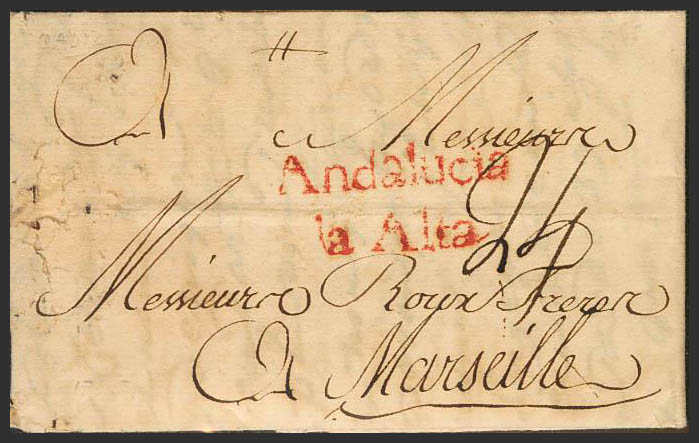 A Messieurs
Andalucia
la Alta
24
Messieurs Roux Freres
A Marseille